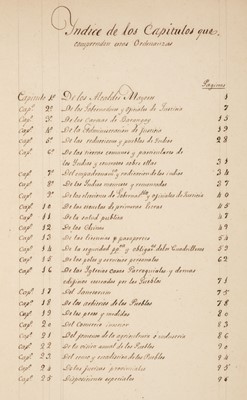 Indice de los Capitulos que
comprenden esas Ordenanzas
Paginas
Capitulo 1º De los Alcaldes Mayores 1
Capº 2º De los Gobernadores y oficiales de Justicia 7
Capº 3º De los Cavezas de Barangay 15
Capº 4º De la Administracion de justicia 19
Capº 5º De las reducciones y pueblos de Indios 28
Capº 6º De las tierras comunes y particulares de
los Indios y comercio entre ellos 31
Capº 7º Del empadronamtº y ordenacion de los indios 34
Capº 8º De los Indios mayores y reservados 37
Capº 9º De las elecciones de Gobernadºs y oficiales de Justicia 40
Capº 10 De las escuelas de primeras letras 45
Capº 11 De la salud publica 47
Capº 12 De los Chinos 49
Capº 13 De las licencias y pasaportes 51
Capº 14 De la seguridad pppª y obligonº de los Cuadrilleros 52
Capº 15 De los gefes y arreglos personales 62
Capº 16 De las Iglesias Casas Parroquiales y demas
edificios costeados por los Pueblos 71
Capº 17 Del Sanctorum 75
Capº 18 De los edificios de los Pueblos 78
Capº 19 De los pesos y medidas 80
Capº 20 Del Comercio Interior 83
Capº 21 Del fomento de la agricultura é industria 86
Capº 22 De la visita anual de los Pueblos 90
Capº 23 Del censo y estadisticas de los Pueblos 94
Capº 24 De las juntas provinciales 95
Capº 25 Disposiciones especiales 96